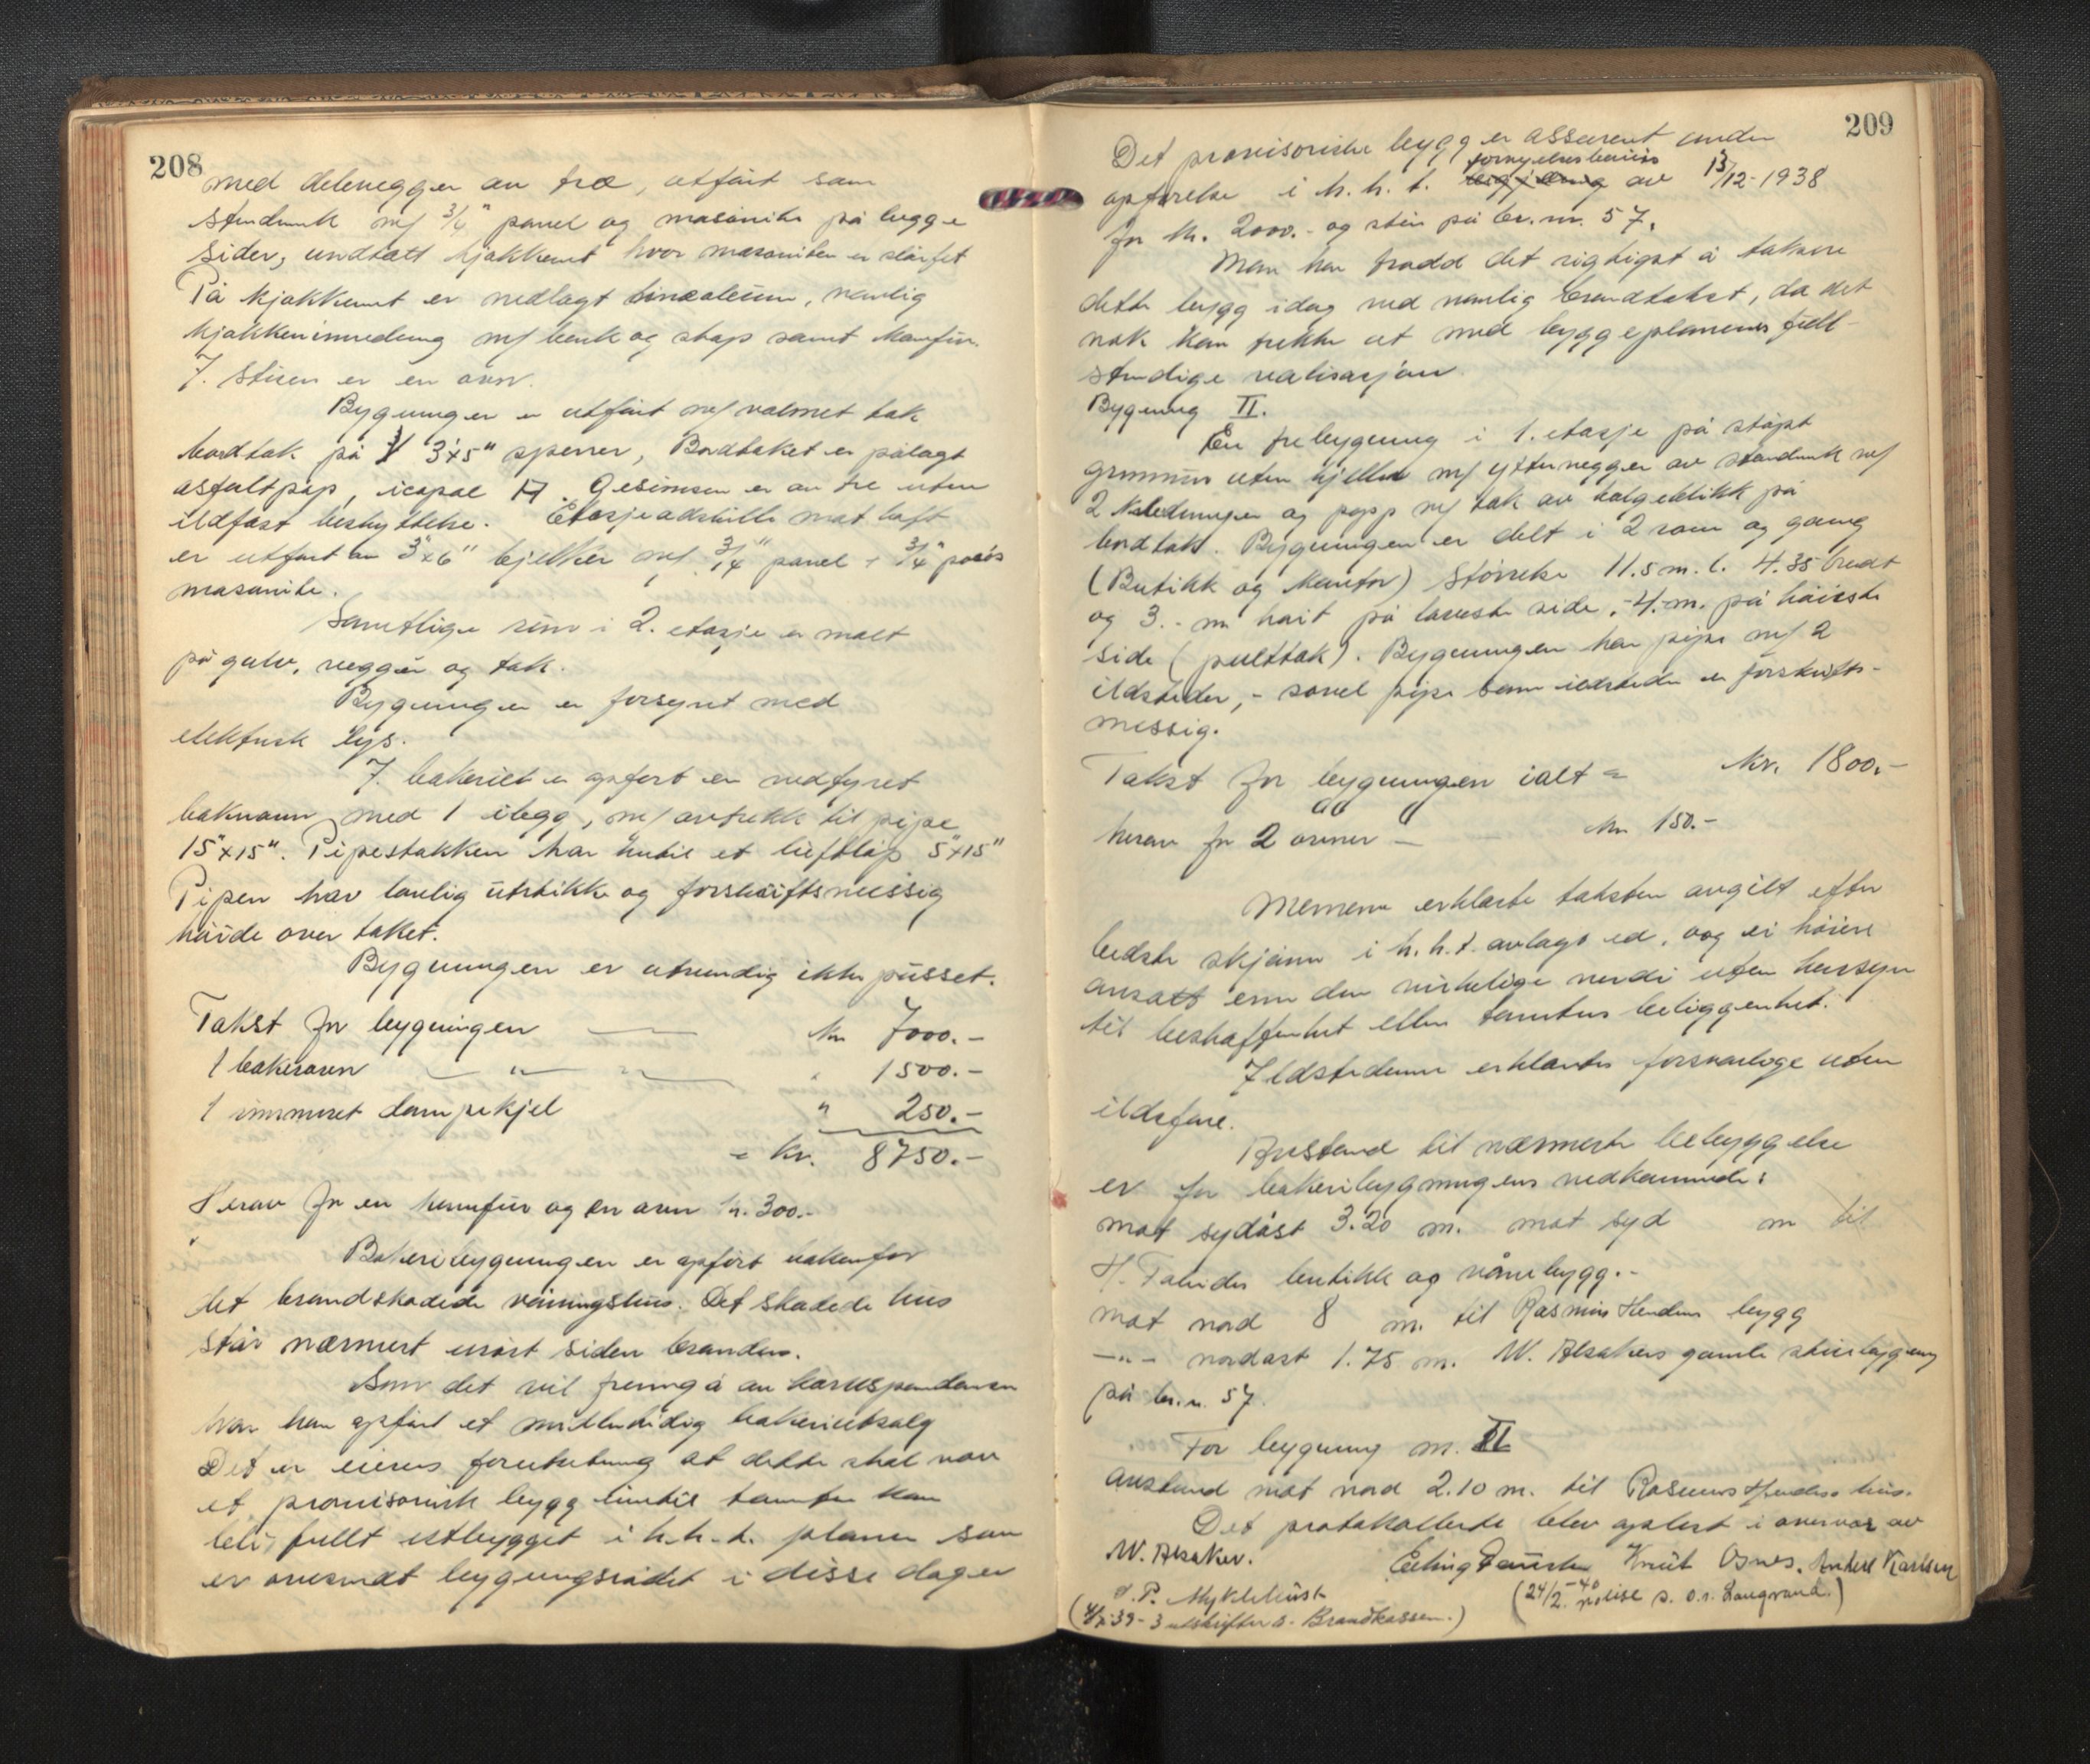 208
med delevegger av træ, utført som
stenderverk m/ 3/4" panel og masonite på begge
sider, undtatt kjøkkenet hvor masoniten er sløifet
På kjøkkenet er nedlagt linoleum, vanlig
kjøkkeninnredning m/ benk og skap samt komfur.
I. stuen er en ovn.
Bygningen er utført m/ valmet tak
bordtak på 3"x5" sperrer, Bordtaket er pålagt
asfaltpap, icopal A. Gesimsen er av tre uten
ildfast beskyttelse. Etasjeadskille mot loft
er utført av 3"x6" bjelker m/ 3/4" panel + 3/4" porøs
masonite.
Samtlige rum i 2. etasje er malt
på gulv, vegger og tak.
Bygningen er forsynt med
elektrisk lys.
I. bakeriet er opført en vedfyret
bakerovn med 1 ilegg, m/ avtrekk til pipe
15"x15". Pipestokken har hertil et luftløp 5"x15"
Pipen har lovlig utstikk og forskriftsmessig
høide over taket.
Bygningen er utvendig ikke pusset.
Takst for bygningen — kr 7000.-
1 bakerovn — " — " 1500.-
1 innmuret dampkjel " 250.-
= kr. 8750.-
Herav for en komfur og en ovn kr. 300.-
Bakeribygningen er opført bakenfor
det brandskadede våningshus. Det skadede hus
står nærmest urørt siden branden.
Som det vil fremgå av korrespondansen
har han opført et midlertidig bakeriutsalg
Det er eierens forutsetning at dette skal være
et provisorisk bygg inntil tomten kan
bli fullt utbygget i h.h.t. planer som
er oversendt bygningsrådet i disse dager
209
Det provisoriske bygg er assurert under
fornyelsesbevis
opførelse i h.h.t. av 13/12-1938
for kr. 2000.- og står på br.nr. 57.
Man har trodd det rigtigst å taksere
dette bygg idag ved vanlig brandtakst, da det
nok kan trekke ut med byggeplanenes full-
stendige realisasjon.
Bygning II.
En trebygning i 1. etasje på støpt
grunnmur uten kjeller m/ yttervegger av stenderverk m/
2 kledninger og papp m/ tak av bølgeblikk på
bordtak. Bygningen er delt i 2 rom og gang
(Butikk og kontor) Størrelse 11.5 m. l. 4.35 bredt
og 3.- m høit på laveste side. - 4. m. på høieste
side (pulttak). Bygningen har pipe m/ 2
ildsteder, - såvel pipe som ildsteder er forskrifts-
messig.
Takst for bygningen ialt = kr. 1800.-
herav for 2 ovner — kr 150.-
Mennene erklærte taksten avgitt efter
bedste skjønn i h.h.t. avlagt ed, og ei høiere
ansatt enn den virkelige verdi uten hensyn
til beskaffenhet eller tomtens beliggenhet.
Ildstedene erklærtes forsvarlige uten
ildsfare.
Avstand til nærmeste bebyggelse
er for bakeribygningens vedkommende:
mot sydøst 3.20 m. mot syd m til
butikk og våningsbygg.-
mot nord 8 m. til Rasmus Hendens bygg
—"— nordøst 1.75 m. W. Alsakers gamle stenbygning
på br.n. 57.
For bygning nr. II
avstand mot nord 2.10 m. til Rasmus Hendens hus.
Det protokollerte blev oplest i overvær av
W. Alsaker. Erling Knut Osnes. Anders Karlsen
O. P. Myklebust
(4/2-39 - 3 utskrifter s. Brandkassen.) (24/2.-40 s. o.r. Langvand.)